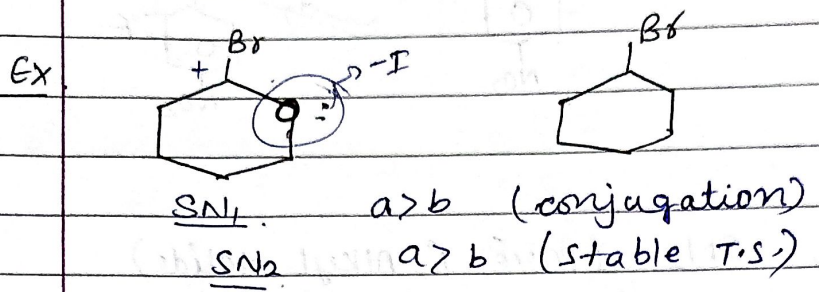 Br Br
Ex + -I
O :
SN1. a>b (conjugation)
SN2 a>b (stable T.S.)